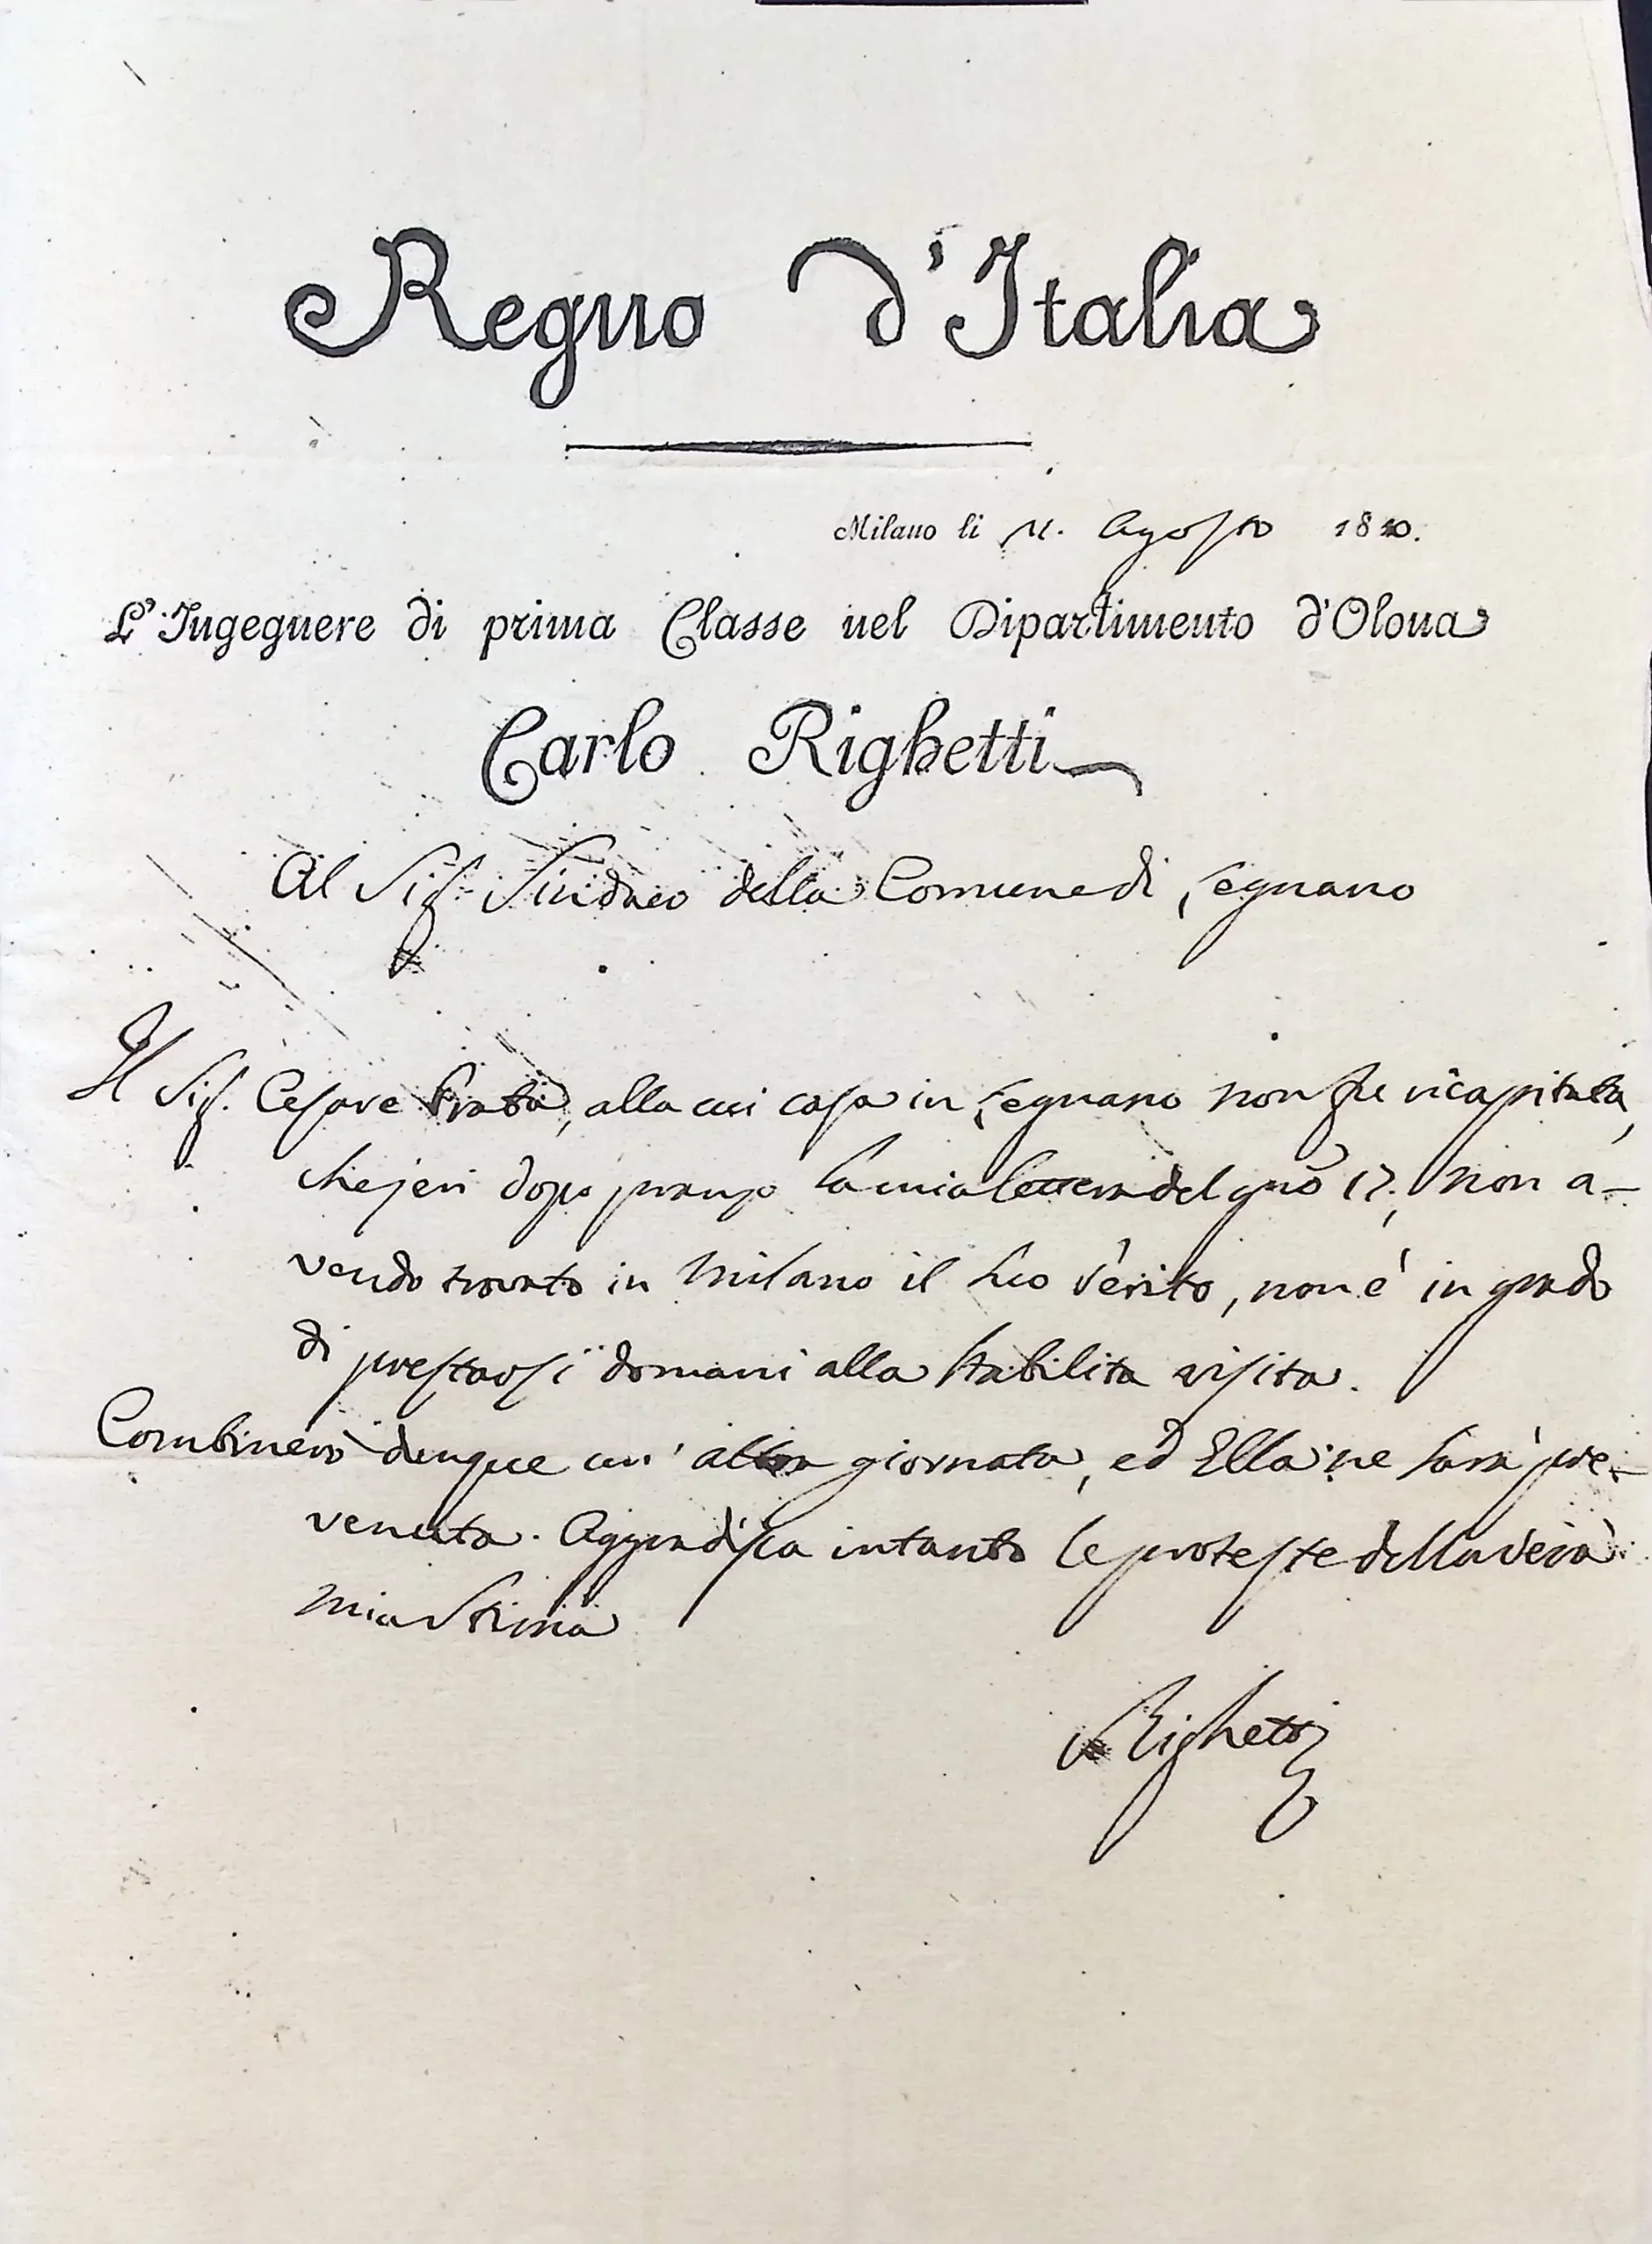 Regno d'Italia
Milano li 21. Agosto 1810.
L'Ingegnere di prima Classe nel Dipartimento d'Olona
Carlo Righetti
Al Sig. Sindaco della Comune di Legnano
Il Sig. Cesare Prata, alla cui casa in Legnano non fu ricapitata,
che jeri dopo pranzo la mia lettera del gno 17, non a-
vendo trovato in Milano il suo Perito, non è in grado
di prestarsi domani alla stabilita visita.
Combinerò dunque un' altra giornata, ed Ella ne sarà pre-
venuta. Aggradisca intanto le proteste della vera
mia stima
Righetti